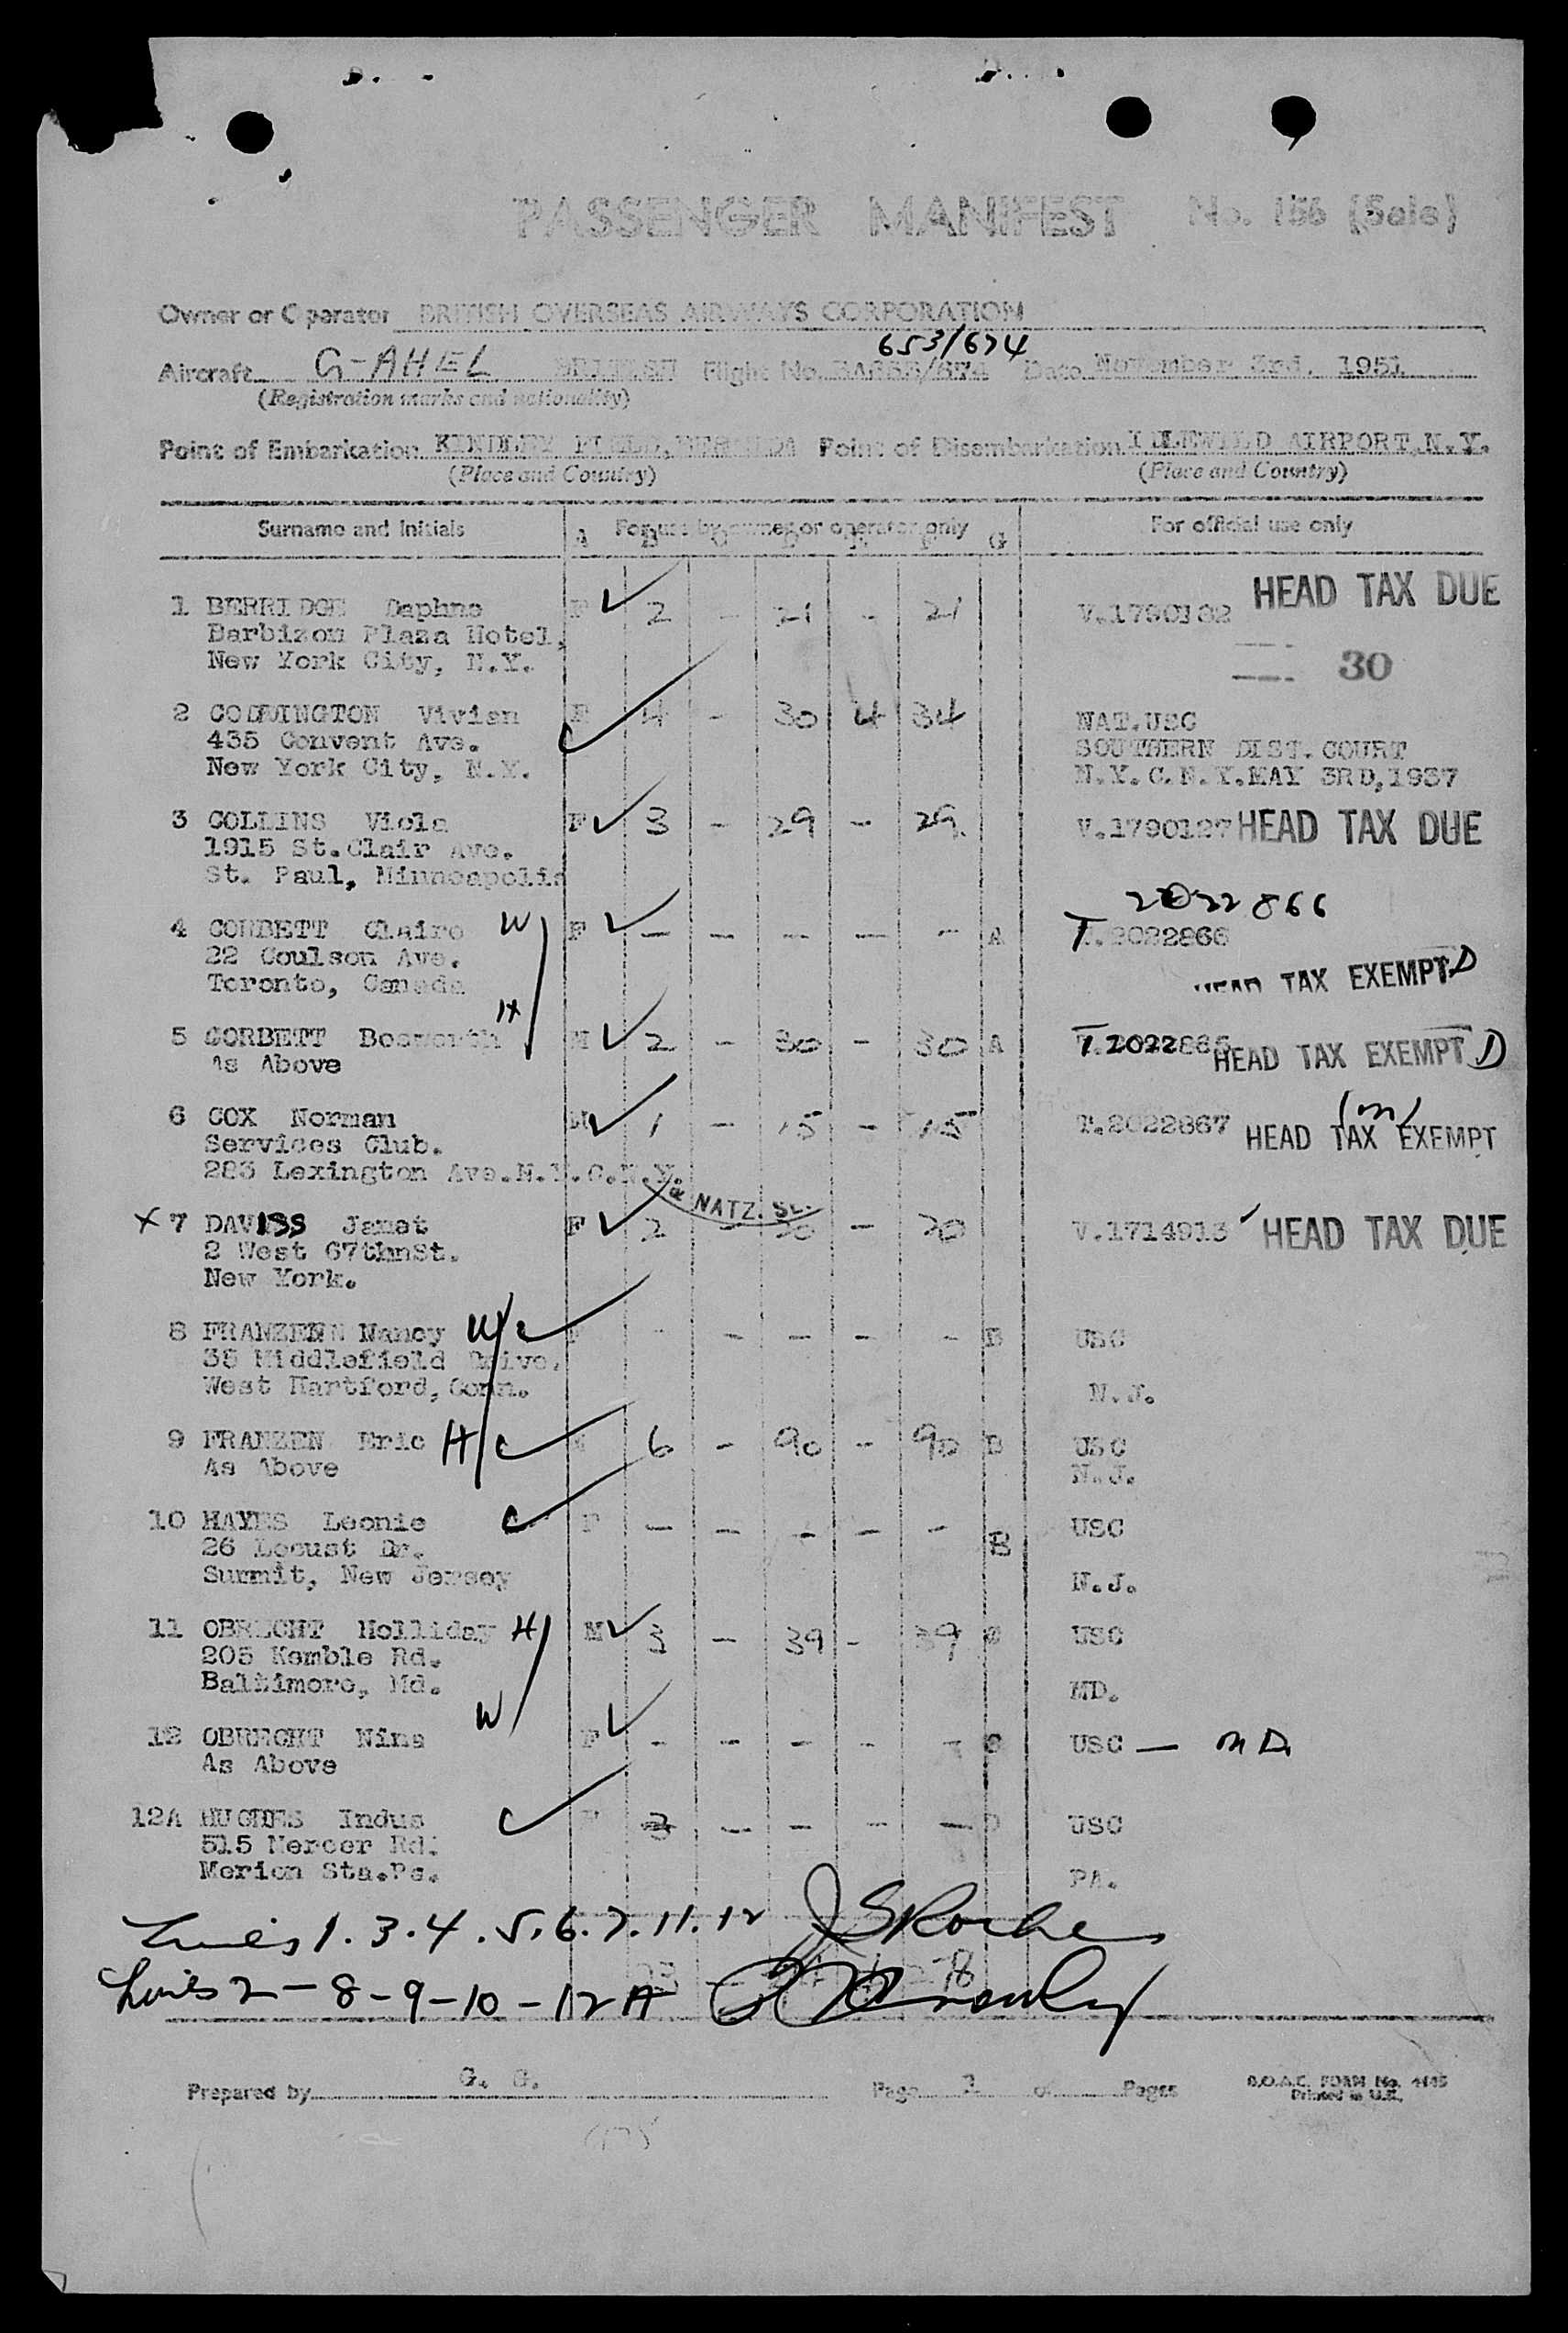 PASSENGER MANIFEST No. 156 (Sale)
Owner or Operator BRITISH OVERSEAS AIRWAYS CORPORATION
653/674
Aircraft G-AHEL BRITISH Flight No. Date November 3rd, 1951
(Registration marks and nationality)
Point of Embarkation KINDLEY FIELD, BERMUDA Point of Disembarkation IDLEWILD AIRPORT, N.Y.
(Place and Country) (Place and Country)
Surname and Initials For use by owner or operator only For official use only
A B C D E F G
1 BERRIDGE Daphne F 2 - 21 - 21 HEAD TAX DUE
Barbizon Plaza Hotel,
New York City, N.Y. 30
2 Vivian F 4 - 30 4 34 NAT.USC
435 Convent Ave. SOUTHERN DIST. COURT
New York City, N.Y. N.Y.C.N.Y.MAY 3RD,1937
3 COLLINS Viola F 3 - 29 - 29 V.1790127 HEAD TAX DUE
1915 St.Clair Ave.
St. Paul, Minneapolis
2022866
4 CORBETT Claire W F - - - - - A T.2022866
22 Coulson Ave.
Toronto, Canada HEAD TAX EXEMPT D
H
5 CORBETT Bosworth M 2 - 30 - 30 A HEAD TAX EXEMPT D
As Above
6 COX Norman M 1 - 15 - 15 T.2022867 HEAD TAX EXEMPT
Services Club.
283 Lexington Ave.N.Y.C.N.Y.
NATZ.
X 7 Janet F 2 - 20 - 20 V.1714913 HEAD TAX DUE
2 West 67thnSt.
New York.
8 Nancy W F - - - - - B USC
35 Middlefield Drive,
West Hartford, Conn. N.J.
9 FRANZEN Eric H 6 - 90 - 90 B USC
As Above N.J.
10 HAYES Leonie F - - - - - B USC
26 Locust Dr.
Summit, New Jersey N.J.
11 OBRECHT Holliday H M 3 - 39 - 39 USC
205 Kemble Rd.
Baltimore, Md. MD.
W
12 OBRECHT Nina F - - - - - C USC — MD.
As Above
12A HUGHES Indus F 3 - - - - USC
515 Mercer Rd.
Merion Sta.Pa. PA.
Lines 1.3.4.5.6.7.11.12 Roche
Lines 2-8-9-10-12A
Prepared by G. G. Page 1 of Pages B.O.A.C. FORM No.
Printed in U.K.